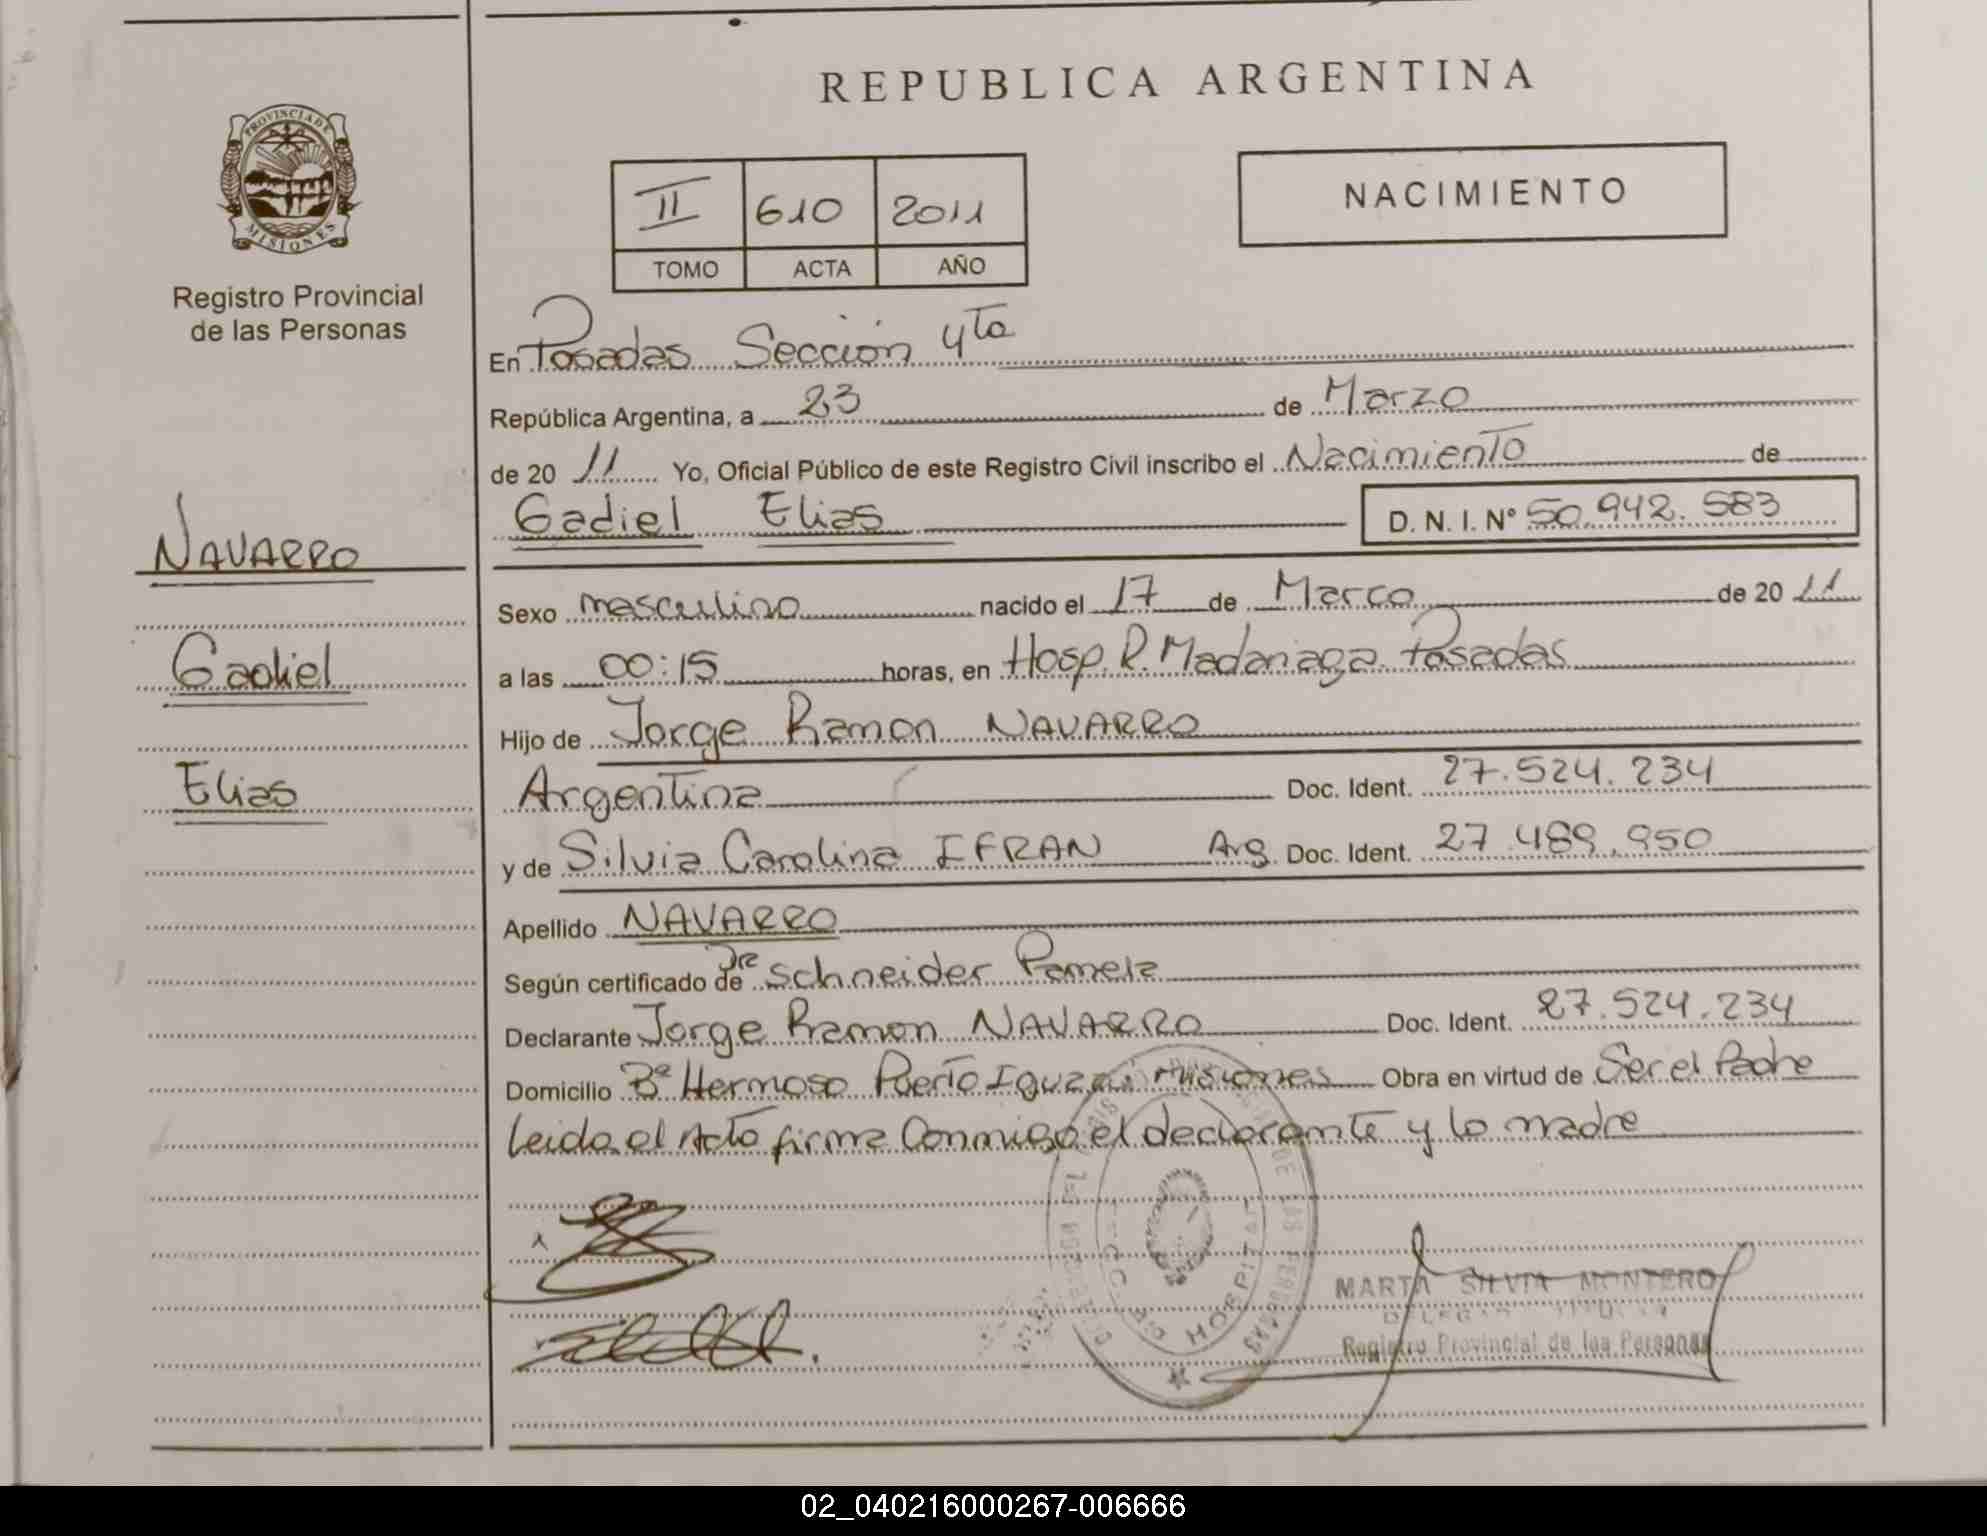 REPUBLICA ARGENTINA
PROVINCIA DE
MISIONES
Registro Provincial
de las Personas
II 610 2011
TOMO ACTA AÑO
NACIMIENTO
En Posadas Sección 4ta
República Argentina, a 23 de Marzo
de 20 11 Yo, Oficial Público de este Registro Civil inscribo el Nacimiento de
Gadiel Elias D. N. I. N° 50.942.583
NAVARRO
Gadiel
Elias
Sexo masculino nacido el 17 de Marzo de 20 11
a las 00:15 horas, en Hosp. R. Madariaga Posadas
Hijo de Jorge Ramon NAVARRO
Argentina Doc. Ident. 27.524.234
y de Silvia Carolina IFRAN Arg. Doc. Ident. 27.489.950
Apellido NAVARRO
Según certificado de Dra Schneider Pamela
Declarante Jorge Ramon NAVARRO Doc. Ident. 27.524.234
Domicilio Bº Hermoso Puerto Iguazú Misiones Obra en virtud de Ser el Padre
Leida el Acto firma Conmigo el declarante y la madre
HOSPITAL
MARTA SILVIA MONTERO
DELEGADA TITULAR
Registro Provincial de las Personas
02_040216000267-006666